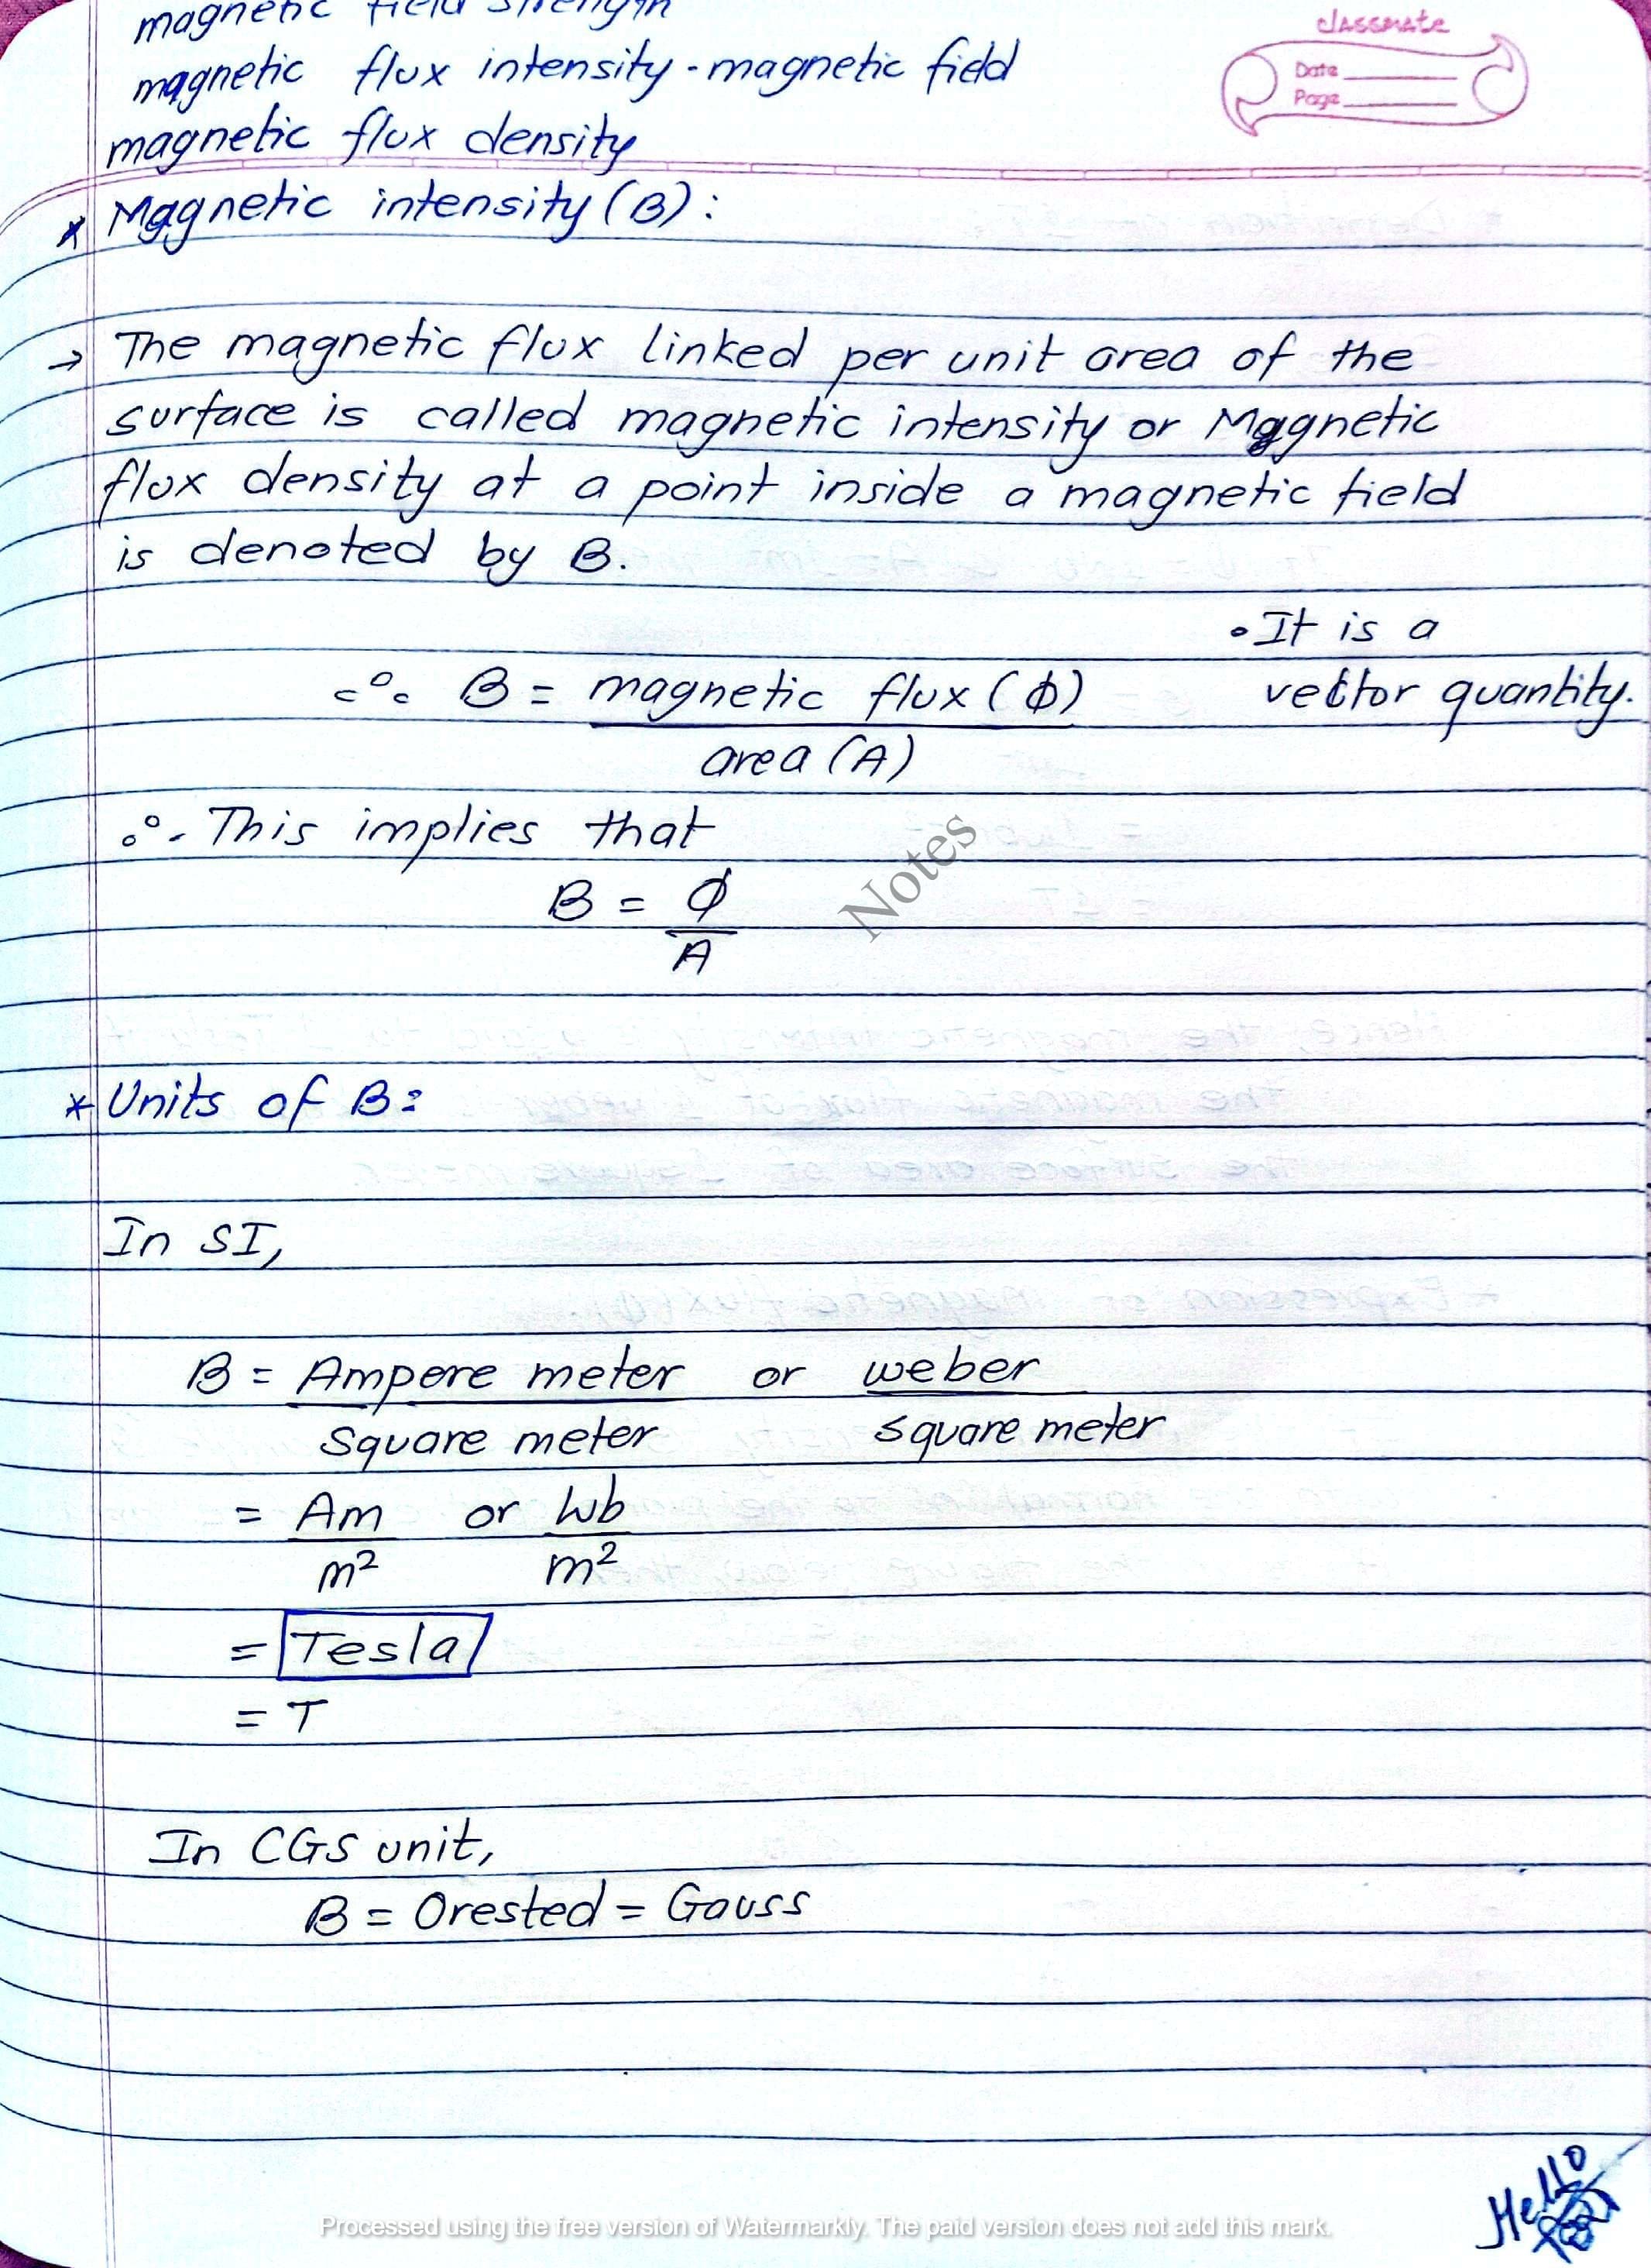 magnetic field strength
magnetic flux intensity - magnetic field
magnetic flux density
classmate
Date
Page
* Magnetic intensity (B):
→ The magnetic flux linked per unit area of the
surface is called magnetic intensity or Magnetic
flux density at a point inside a magnetic field
is denoted by B.
• It is a
vector quantity.
∴ B = magnetic flux (ϕ)
area (A)
∴ This implies that
B = ϕ
A
Notes
* Units of B:
In SI,
B = Ampere meter or weber
Square meter square meter
= Am or Wb
m² m²
= Tesla
= T
In CGS unit,
B = Orested = Gauss
Hello
Processed using the free version of Watermarkly. The paid version does not add this mark.